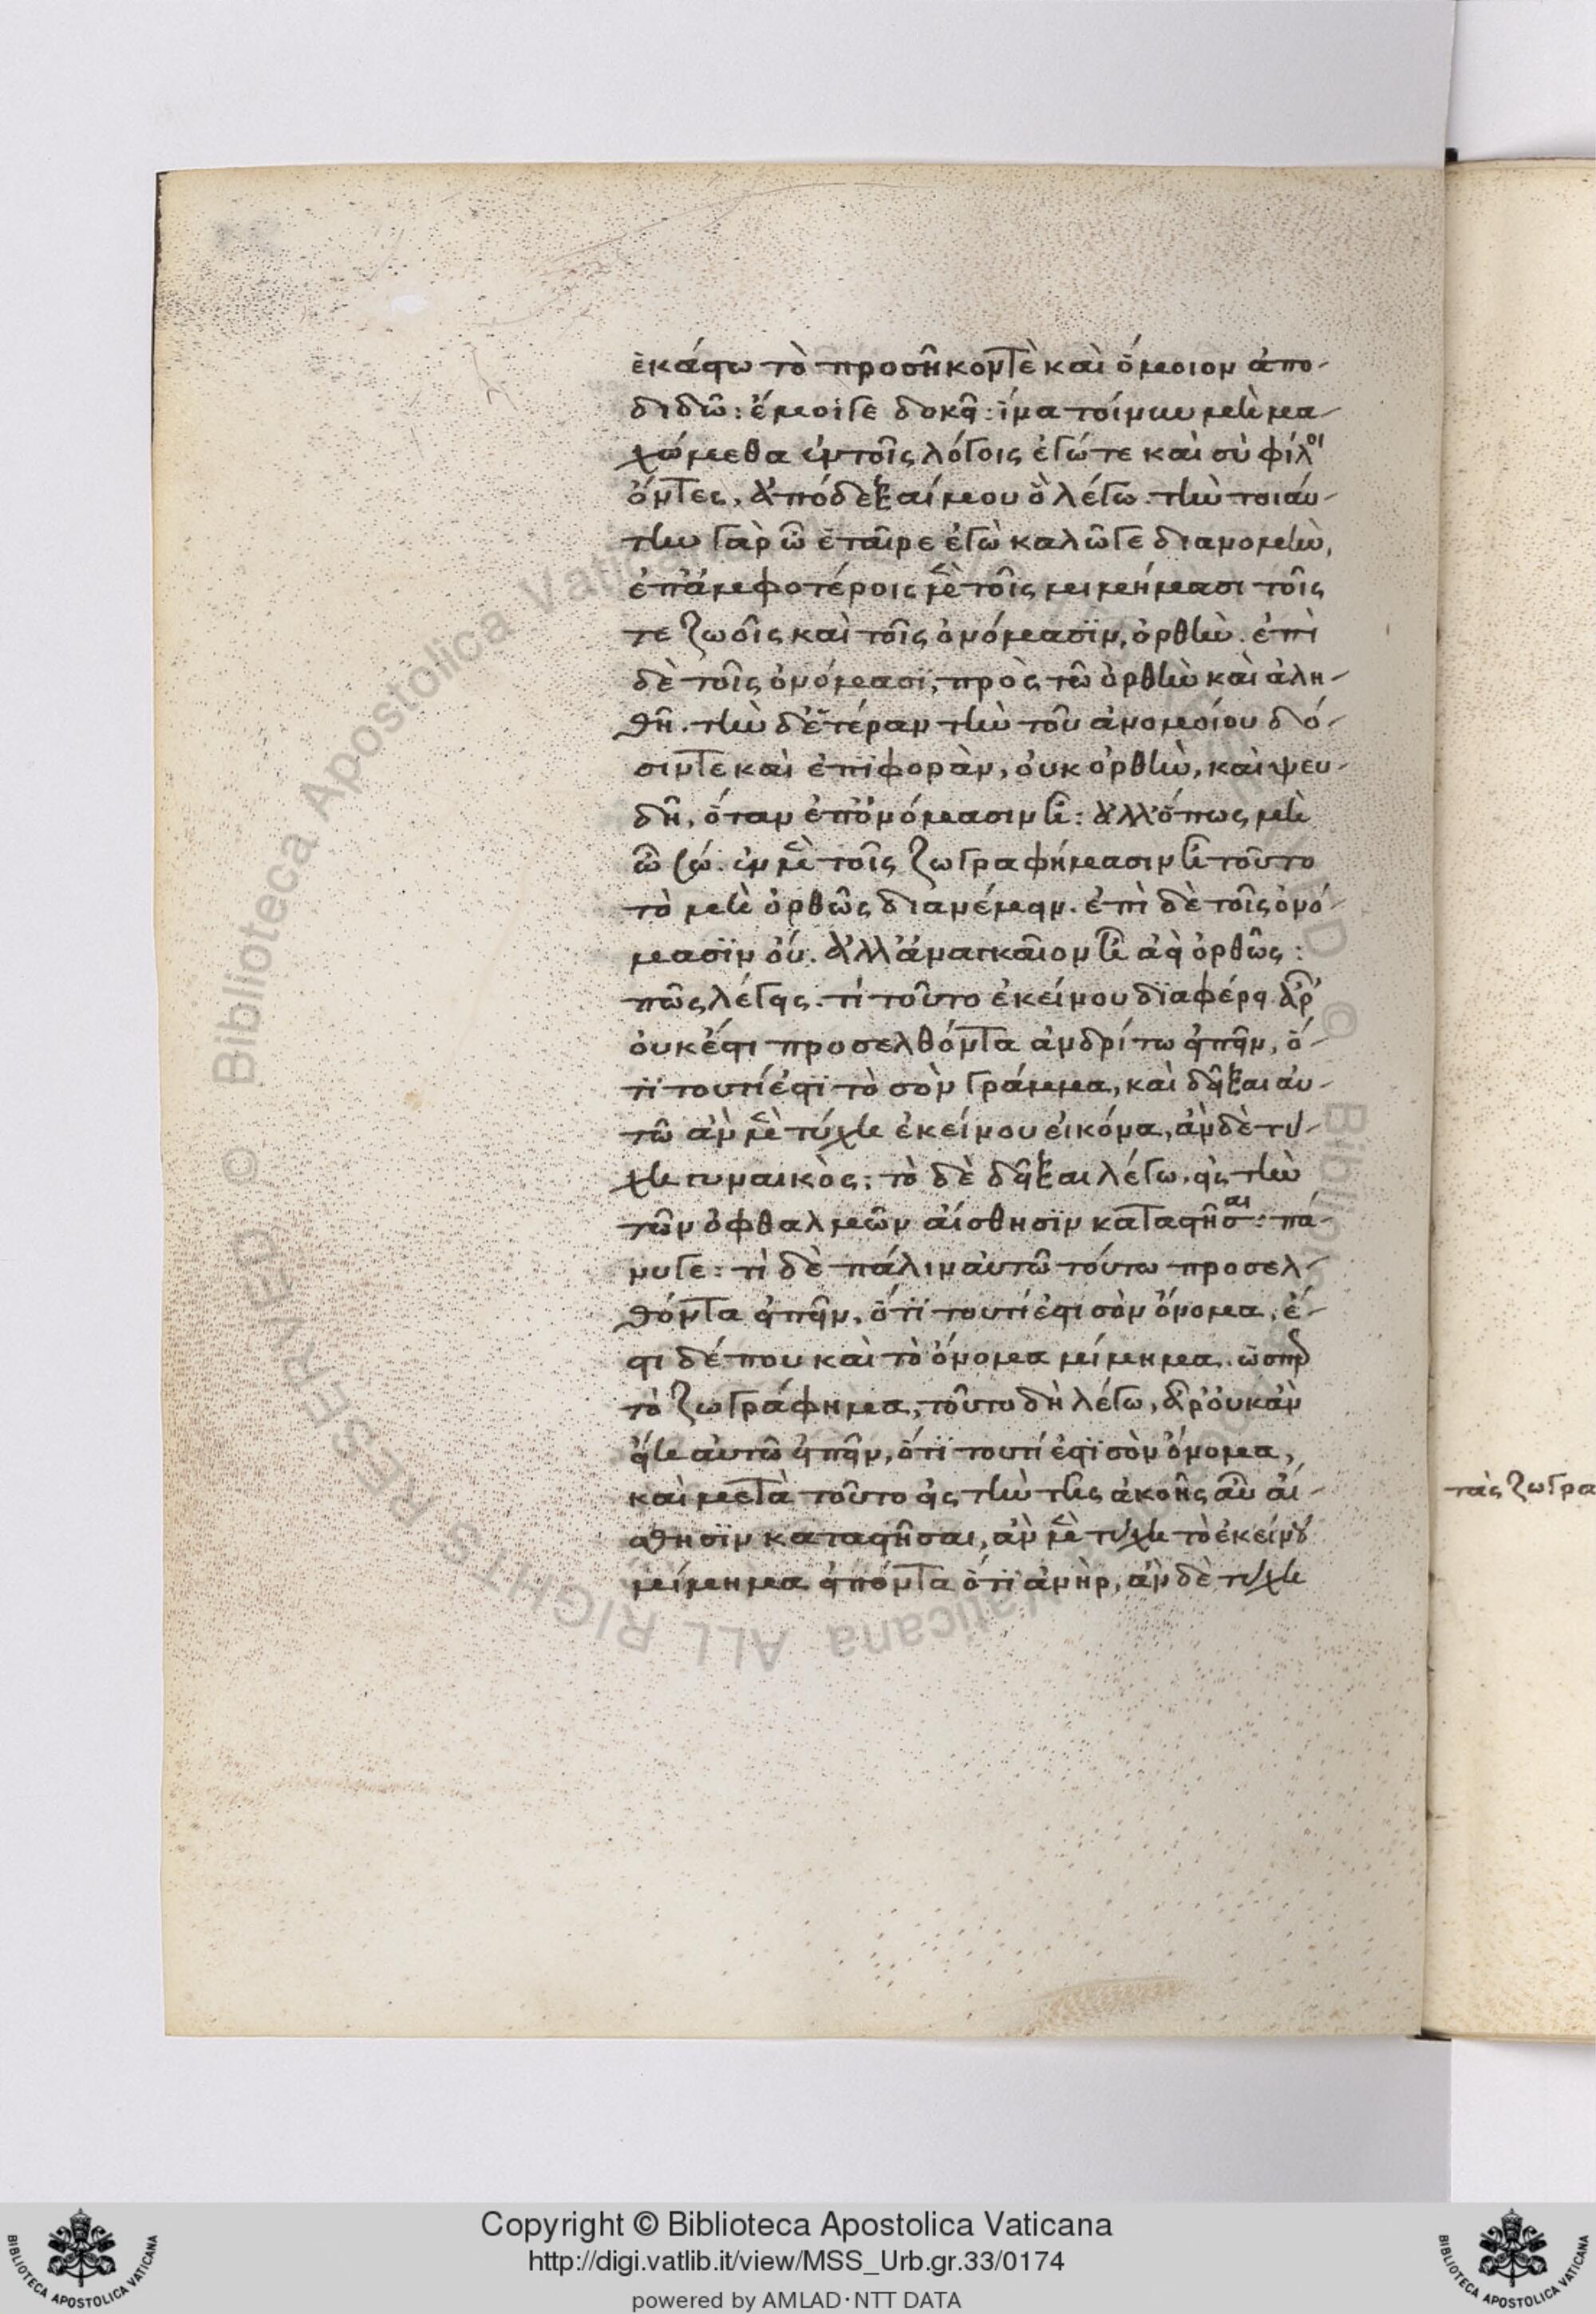 ἑκάστω τὸ προσῆκον τὲ καὶ ὅμοιον ἀπο-
διδῶ: ἔμοιγε δοκεῖ: ἵνα τοίνυν μὴ μα-
χώμεθα ἐν τοῖς λόγοις ἐγώ τε καὶ σὺ φίλοι
ὄντες, ἀπόδεξαί μου ὃ λέγω. τὴν τοιαύ-
την γὰρ ὦ ἑταῖρε ἐγὼ καλῶ γε διανομὴν,
ἐπ' ἀμφοτέροις μὲν τοῖς μιμήμασι τοῖς
τε ζώοις καὶ τοῖς ὀνόμασϊν, ὀρθὴν. ἐπὶ
δὲ τοῖς ὀνόμασϊ, πρὸς τῶ ὀρθὴν καὶ ἀλη-
θῆ. τὴν δ' ἑτέραν τὴν τοῦ ἀνομοίου δό-
σιν τε καὶ ἐπϊφορὰν, οὐκ ὀρθὴν, καὶ ψευ-
δῆ, ὅταν ἐπ' ὀνόμασιν ἦ: ἀλλ' ὅπως μὴ
ὦ σώ. ἐν μὲν τοῖς ζωγραφήμασιν ἦ τοῦτο
τὸ μὴ ὀρθῶς διανέμειν. ἐπὶ δὲ τοῖς ὀνό-
μασϊν οὔ. ἀλλ' ἀναγκαῖον ἦ ἀεὶ ὀρθῶς:
πῶς λέγεις. τί τοῦτο ἐκείνου δϊαφέρει ἆρ'
οὐκ ἔστι προσελθόντα ἀνδρί τω εἰπεῖν, ὅ-
τϊ τουτί ἐστϊ τὸ σὸν γράμμα, καὶ δεῖξαι αὐ-
τῶ ἂν μὲν τύχη ἐκείνου εἰκόνα, ἂν δὲ τύ-
χη γυναικὸς: τὸ δὲ δεῖξαι λέγω, εἰς τὴν
τῶν ὀφθαλμῶν αἴσθησϊν καταστῆσαι: πά-
νυ γε: τὶ δὲ πάλιν αὐτῶ τούτω προσελ-
θόντα εἰπεῖν, ὅτϊ τουτί ἐστι σὸν ὄνομα, ἔ-
στι δέ που καὶ τὸ ὄνομα μίμημα. ὥσπερ
τὸ ζωγράφημα, τοῦτο δὴ λέγω, ἆρ' οὐκ ἂν
εἴη αὐτῶ εἰπεῖν, ὅτϊ τουτί ἐστϊ σὸν ὄνομα,
καὶ μετὰ τοῦτο εἰς τὴν τῆς ἀκοῆς αὖ αἴ-
σθησϊν καταστῆσαι, ἂν μὲν τύχη τὸ ἐκείνου
μίμημα εἰπόντα ὅτϊ ἀνὴρ, ἂν δὲ τύχη
τὰς ζωγρα
Copyright © Biblioteca Apostolica Vaticana
http://digi.vatlib.it/view/MSS_Urb.gr.33/0174
powered by AMLAD·NTT DATA
BIBLIOTECA APOSTOLICA VATICANA
BIBLIOTECA APOSTOLICA VATICANA